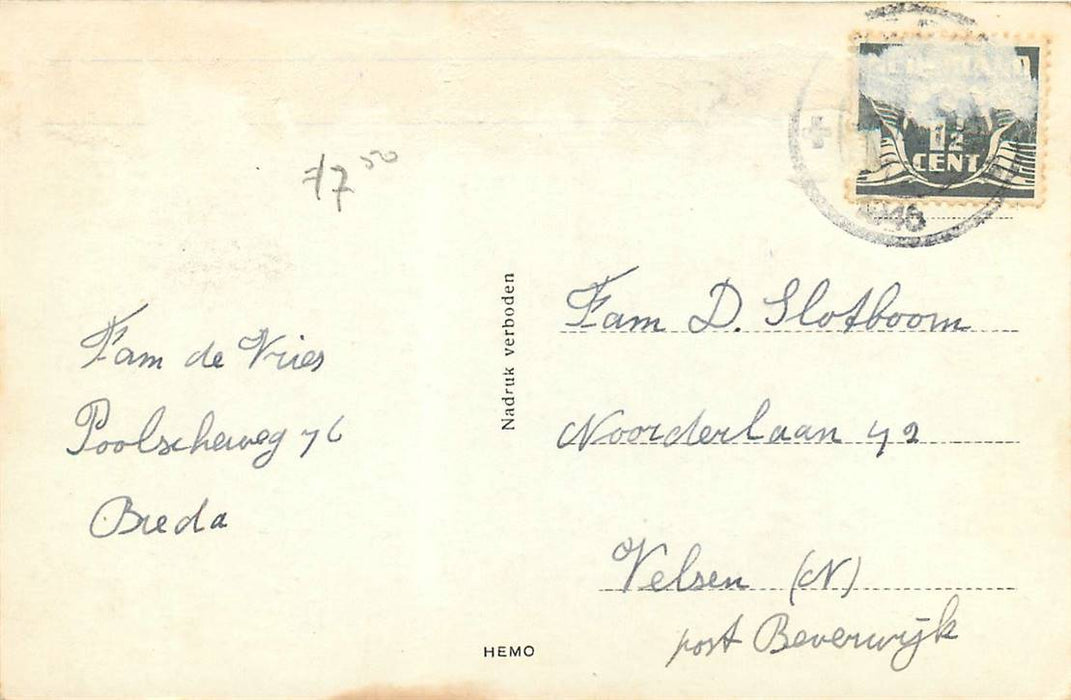 NEDERLAND
1½
CENT
1946
f 7 50
Fam de Vries
Poolscheweg 76
Breda
Nadruk verboden
HEMO
Fam D. Slotboom
Noorderlaan 42
Velsen (N)
post Beverwijk